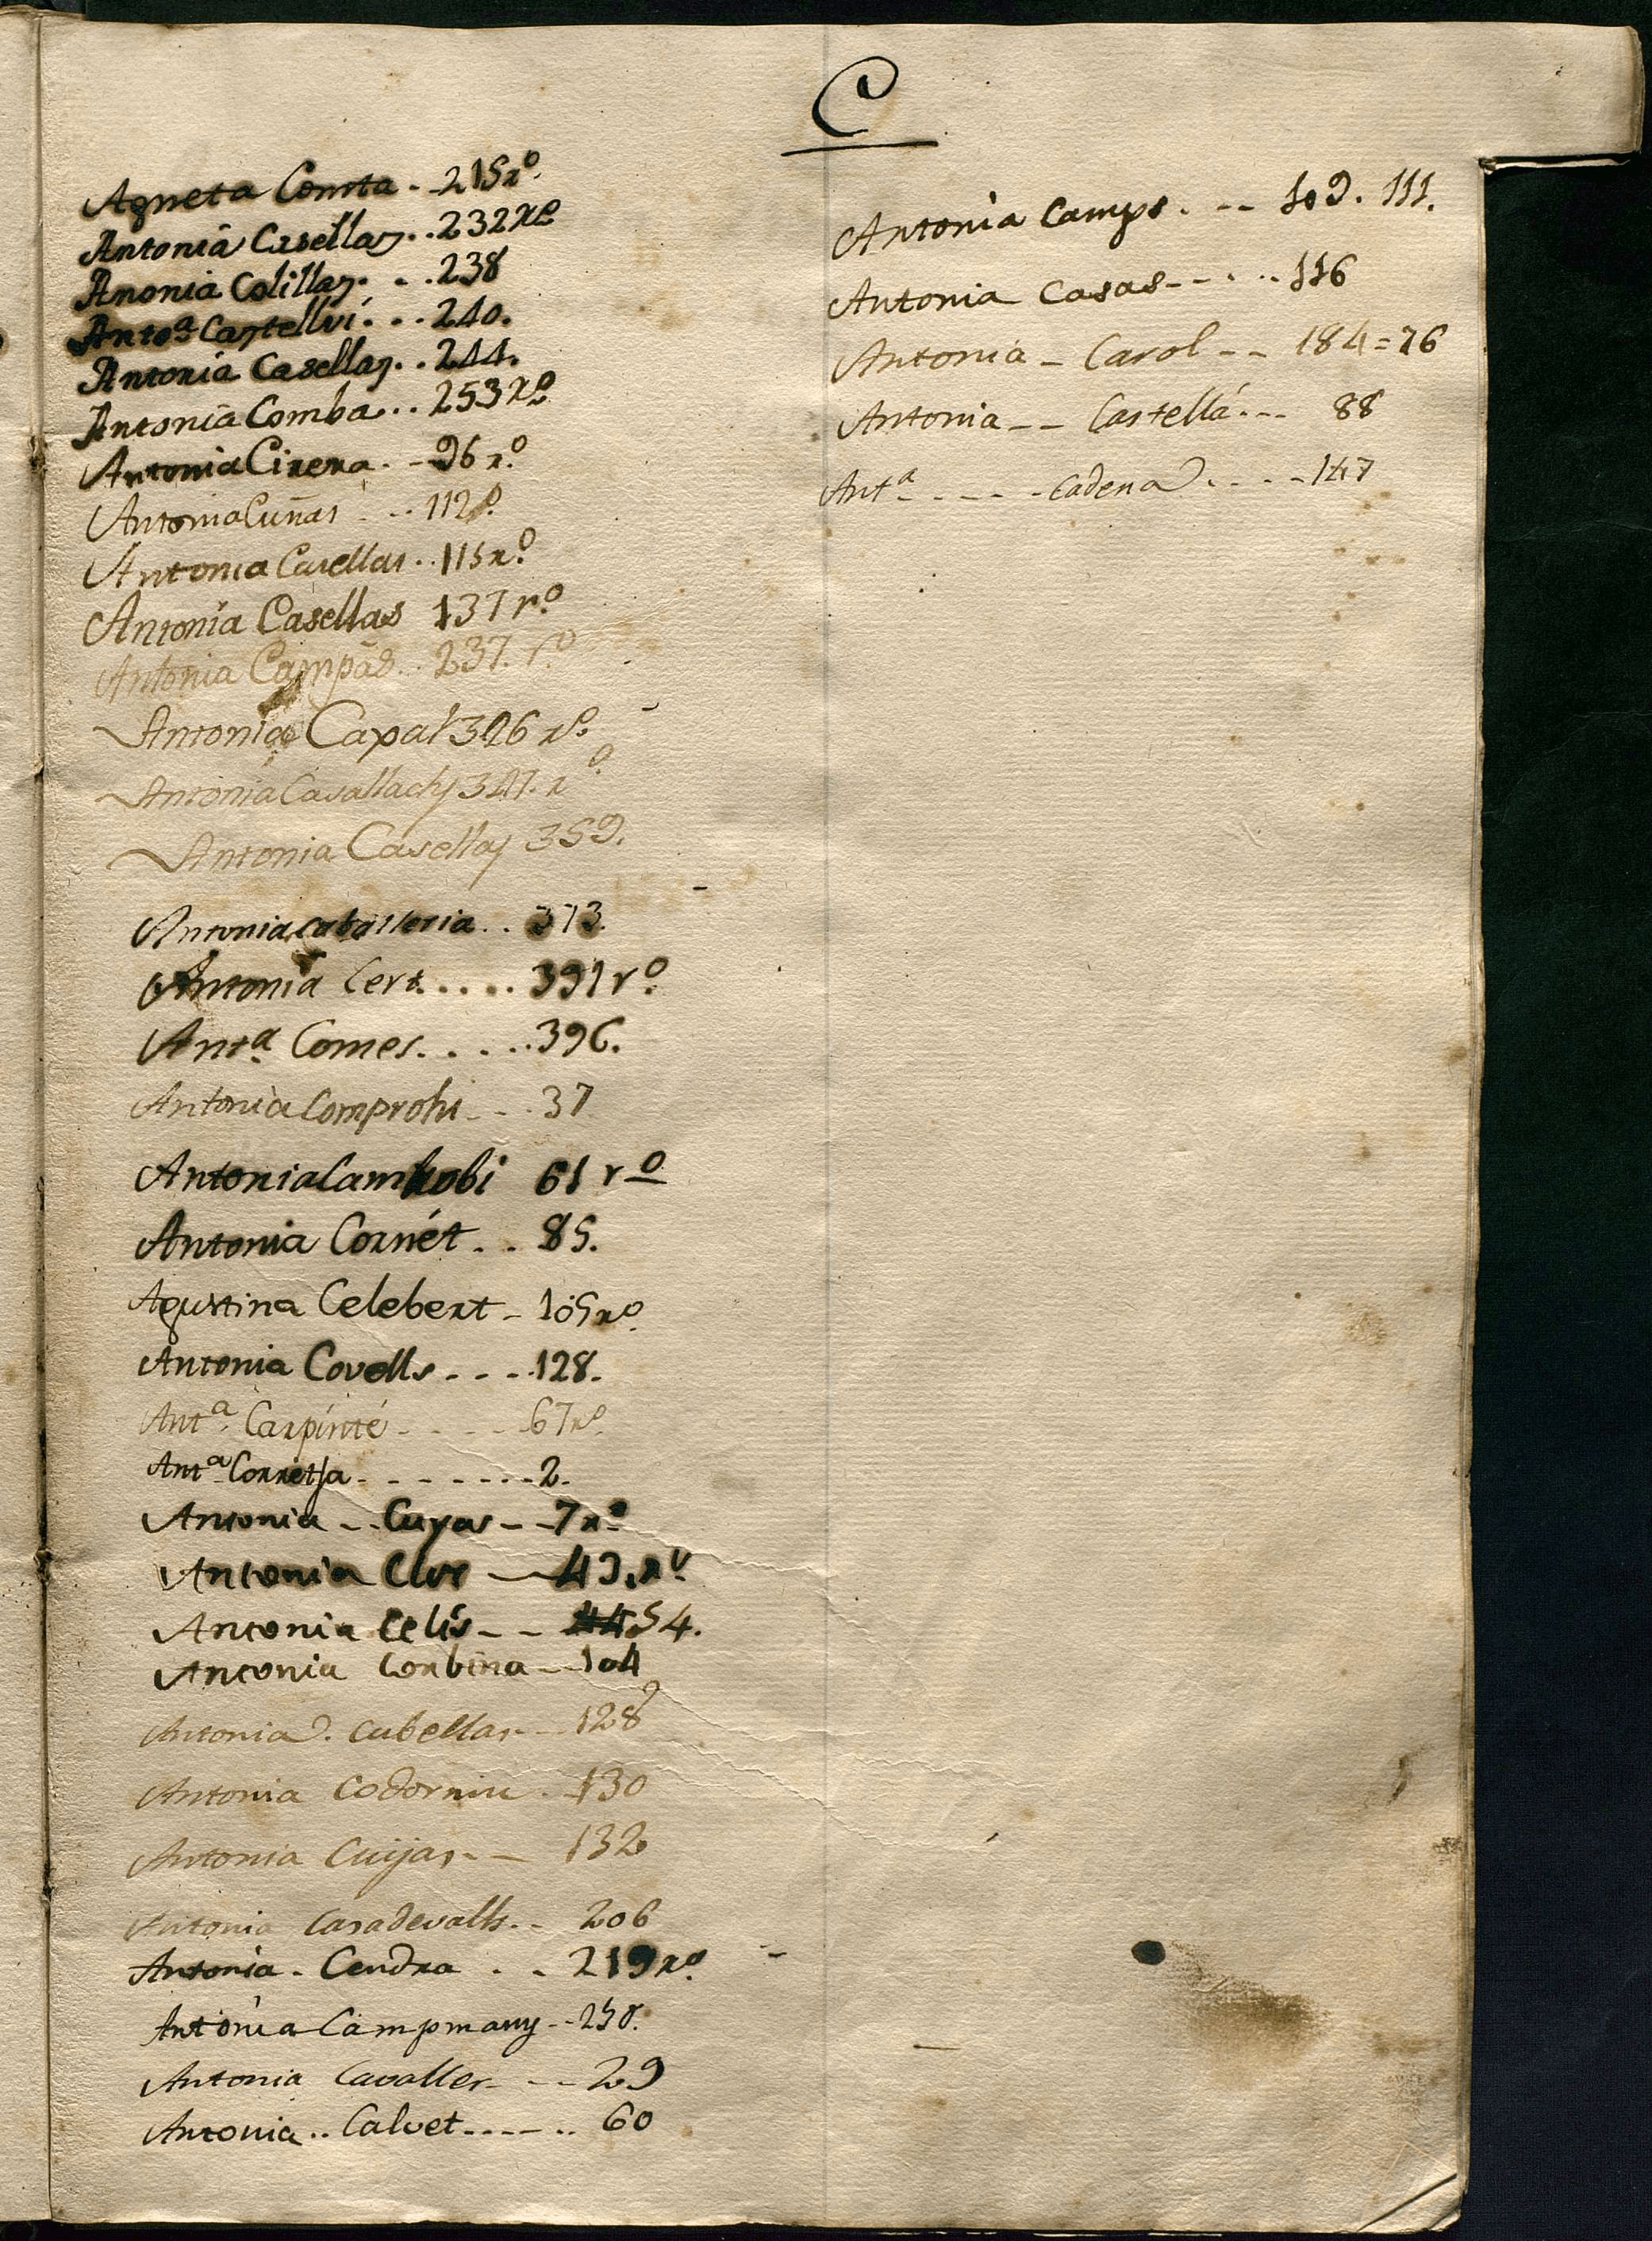 C
Agneta Comta . - 215 ro.
Antonia Casellas . . 232 Ro
Anonia Colillas . . . 238
Anto.a Castellvi . . . 240.
Antonia Casellas . . 244.
Antonia Comba . . . 253 Ro
Antonia Cirera . - 96 ro.
Antonia Cuñas . . . 112
Antonia Casellas . . 115 ro.
Antonia Casellas 137 ro.
Antonia Campás . . 237. ro.
Antonia Capal 326 ro.
Antonia Casallachs 327. ro
Antonia Casellas 359.
Antonia caballeria . . 373.
Antonia Cert . . . . . 391 ro.
Ant.a Comes . . . . . 396.
Antonia Comprohi - . . 37
Antonia Camprobi 61 ro
Antonia Cornét . . 85.
Agustina Celebert - 105 ro.
Antonia Covells - - - . 128.
Ant.a Carpinté - . - - 67 ro.
Ant.a Corretja - - - - - - - 2.
Antonia - . Cuyas - - 7 ro
Antonia Clos — 43. ro.
Antonia Celis - - 54.
Antonia Corbina - - 104
Antonia . Cubellas - - 128
Antonia Codorniu . - 130
Antonia Cuijas - — 132
Antonia Casadevalls . - 206
Antonia . Cendra . - 219 ro.
Antonia Campmany - - 230.
Antonia Cavaller - - - 29
Antonia . . Calvet - - - - . . 60
Antonia Camps . - - 109. 111.
Antonia Casas - - . . . 116
Antonia - Carol - - 184 = 76
Antonia - - Castellá - - - 88
Ant.a - - - - - Cadena . - . - 147